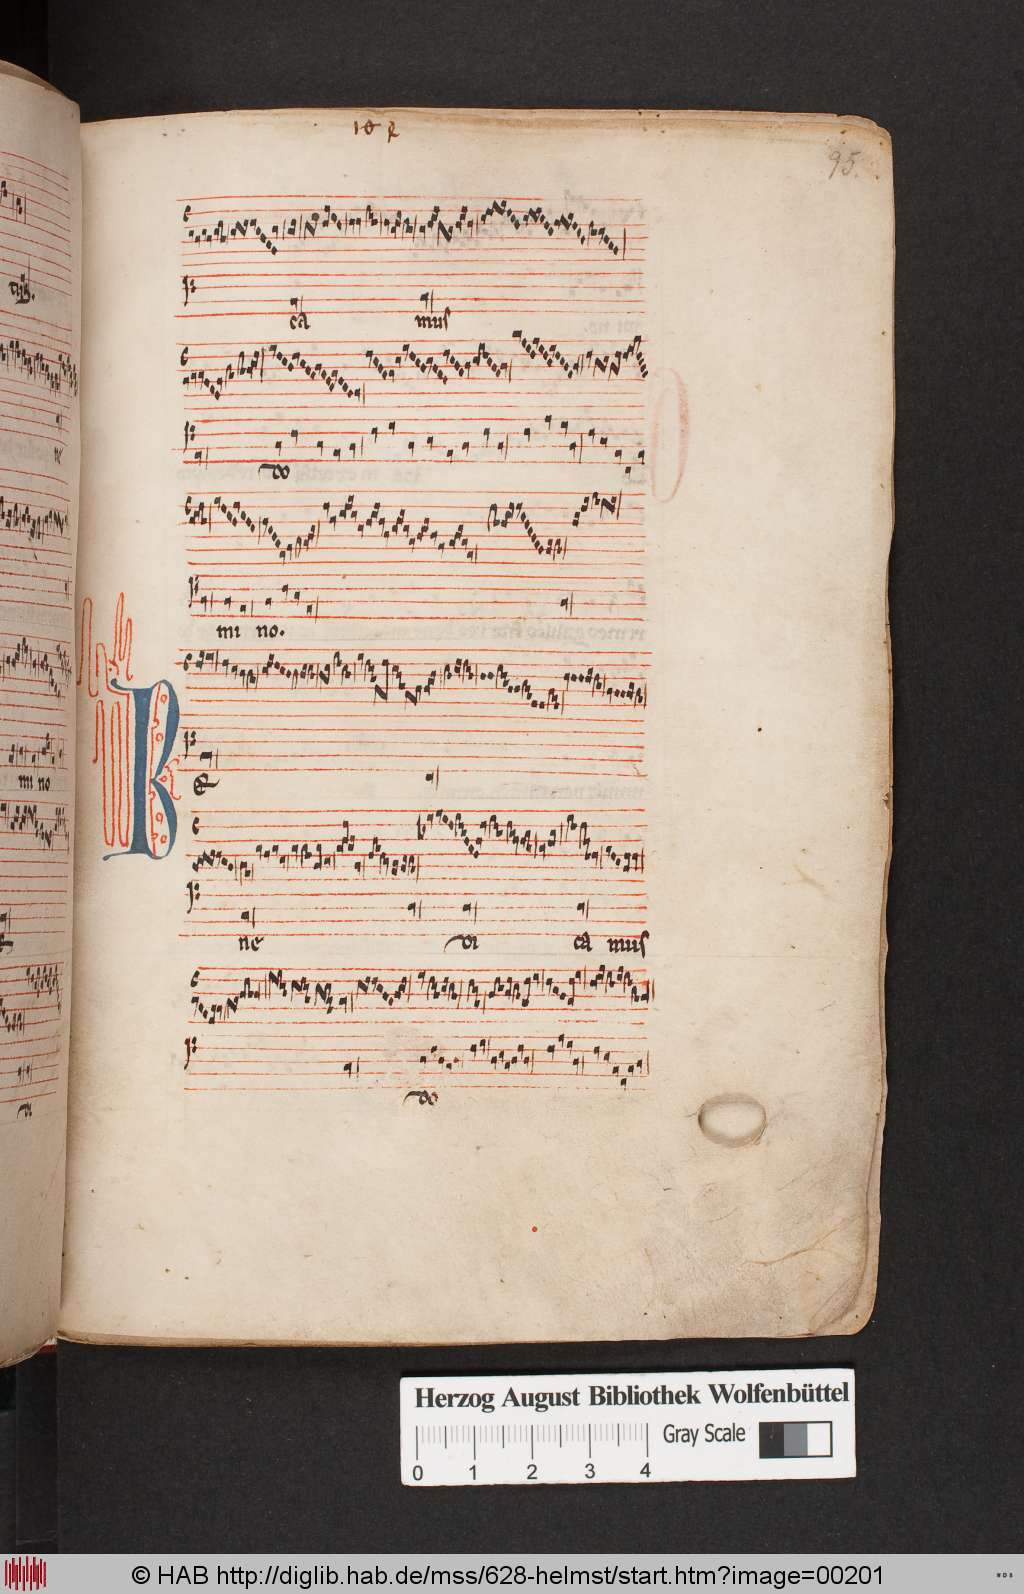 95.
ca mus
do
mi no.
B
e
ne di ca mus
do
mi no
Herzog August Bibliothek Wolfenbüttel
Gray Scale
0 1 2 3 4
© HAB http://diglib.hab.de/mss/628-helmst/start.htm?image=00201